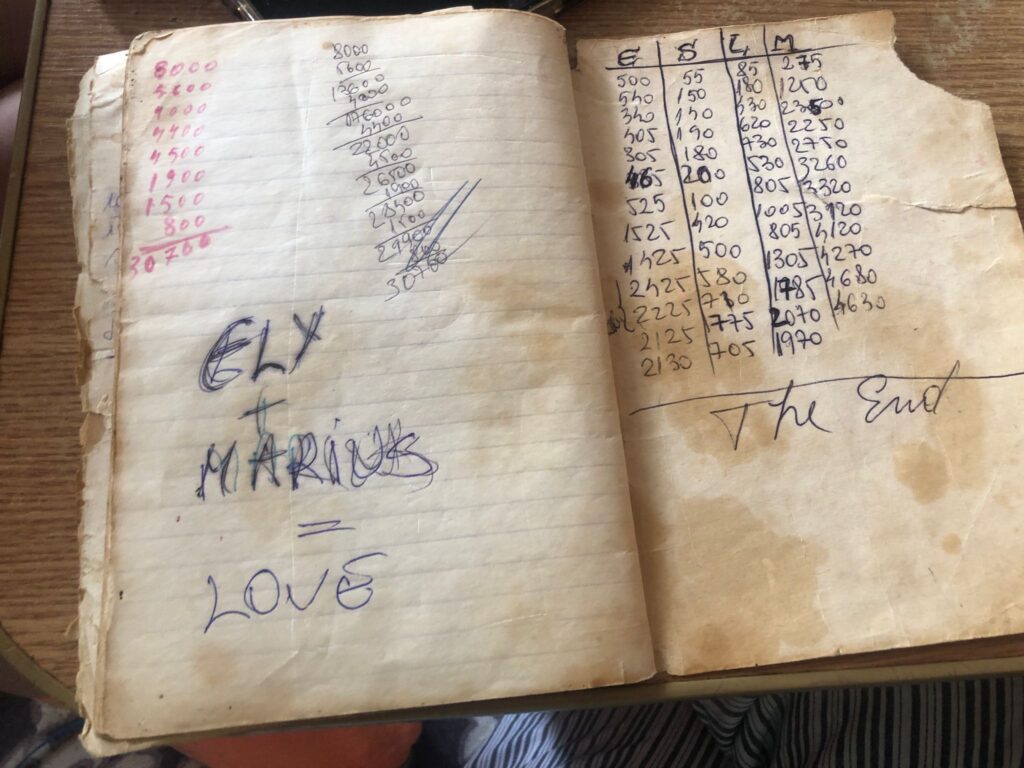 8000
5600
4000
4400
4500
1900
1500
800
30700
8000
5600
13600
4000
17600
4400
22000
4500
26500
1900
28400
1500
29900
800
30700
ELY
+
MARiUS
=
LOVE
E S L M
500 55 85 275
540 150 180 1250
340 140 430
405 190 620 2250
305 180 730 2750
465 200 530 3260
525 100 805 3320
1525 420 1005
1425 500 805 4120
2425 580 1305 4270
2225 1785 4680
2125 775 2070 4630
2130 705 1970
The End